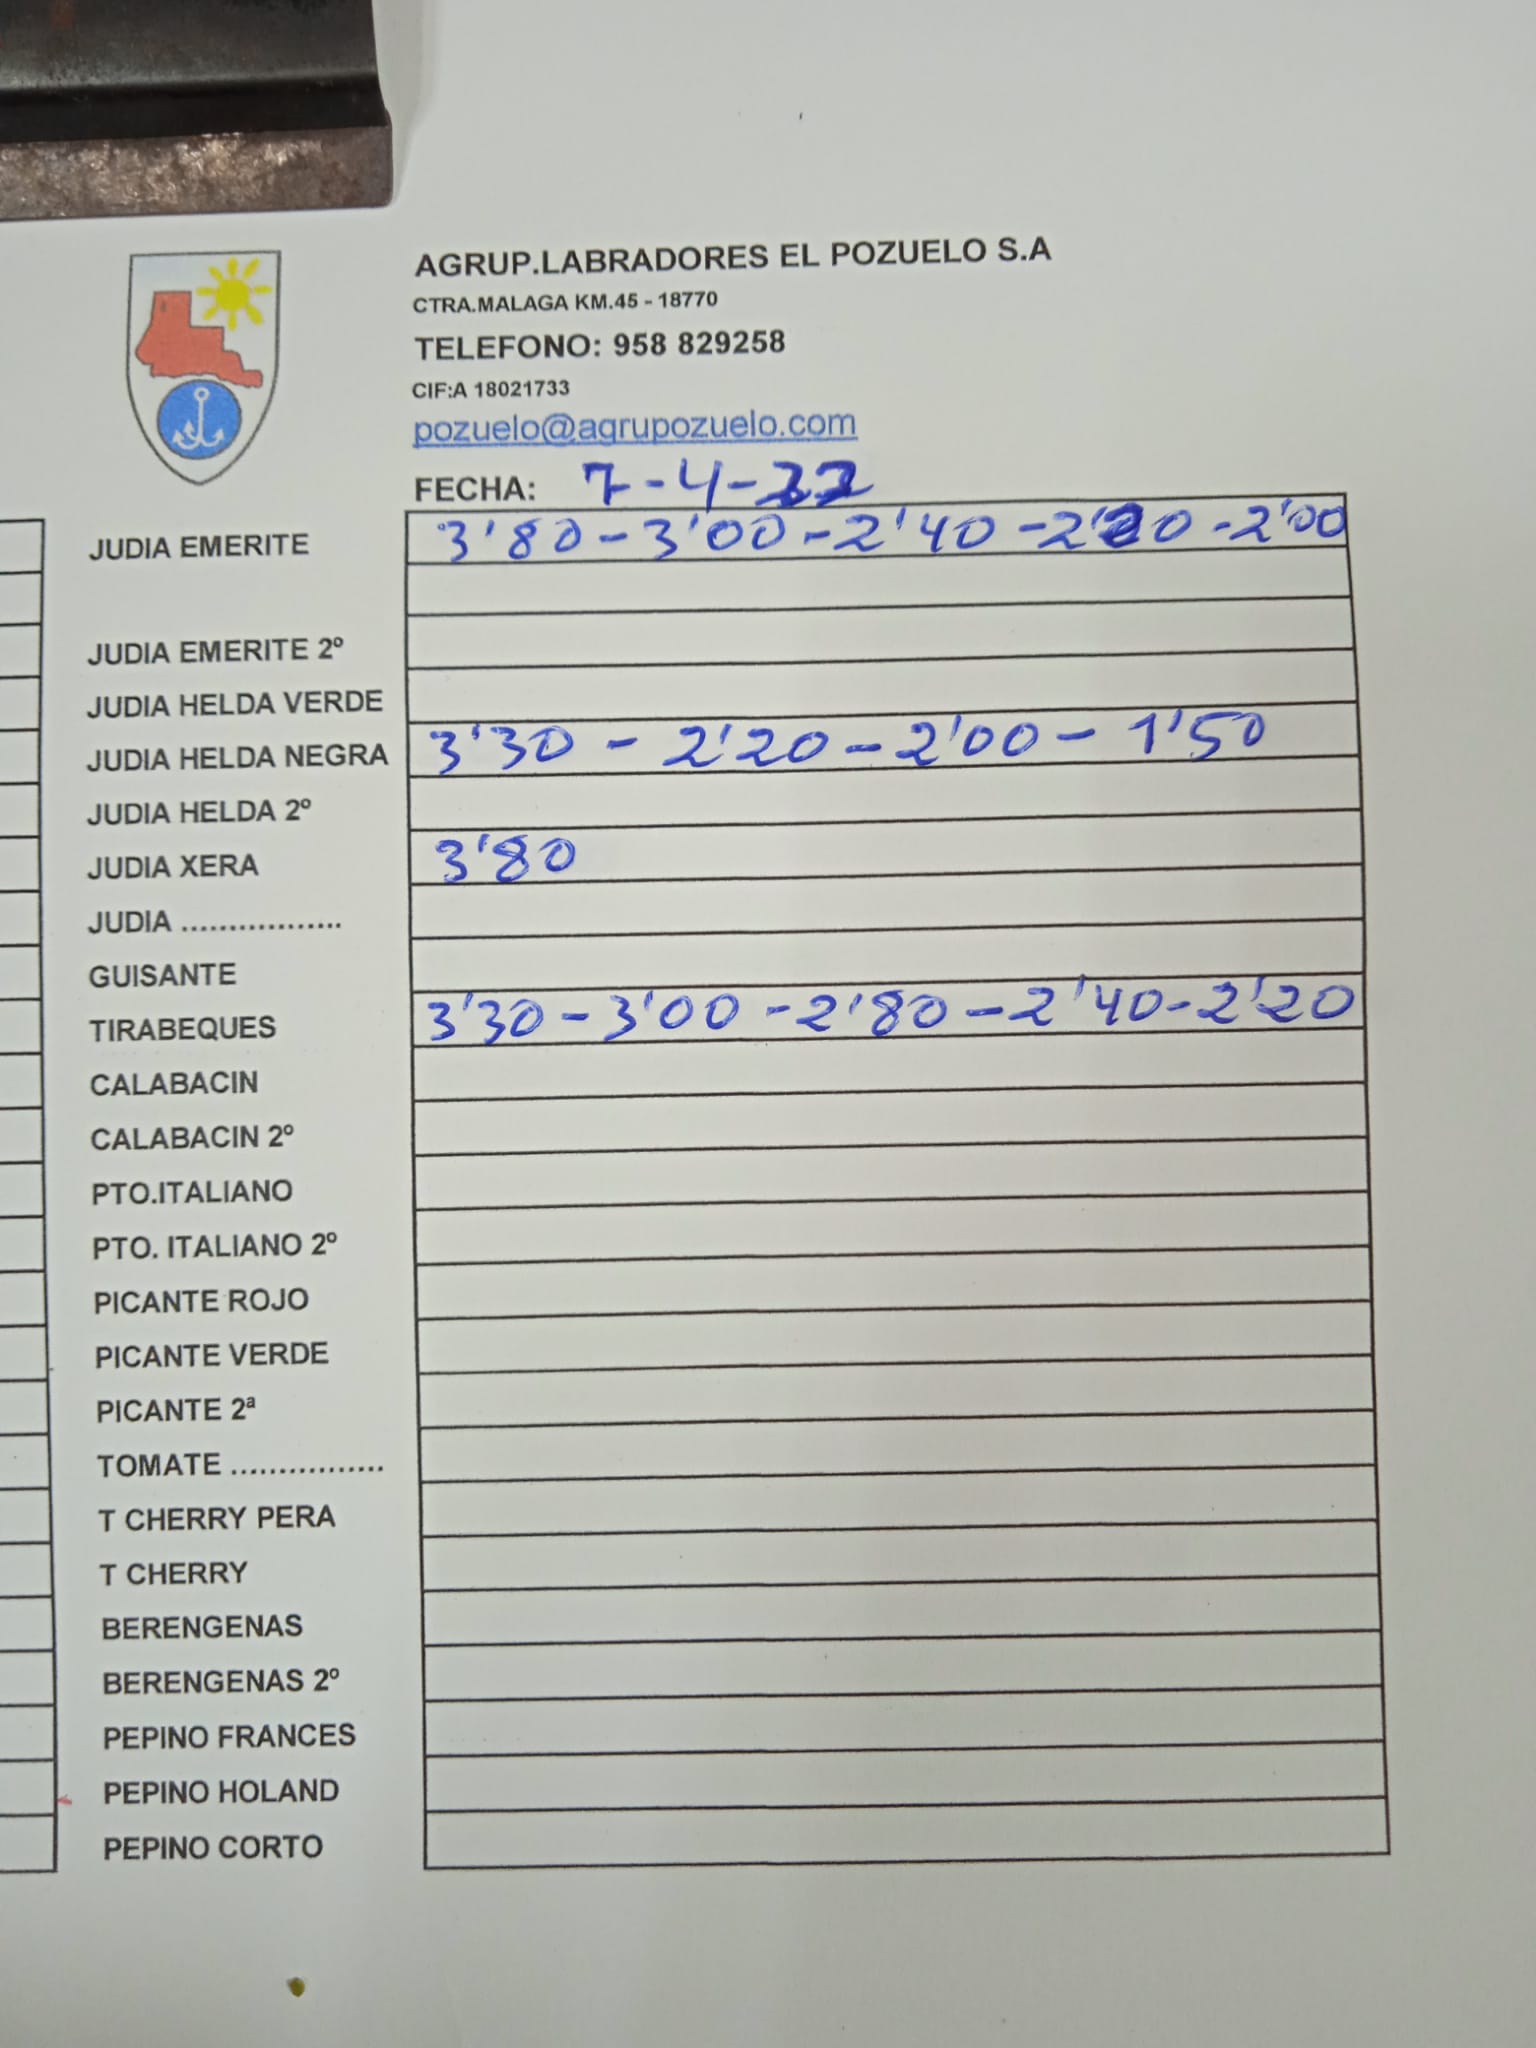 AGRUP.LABRADORES EL POZUELO S.A
CTRA.MALAGA KM.45 - 18770
TELEFONO: 958 829258
CIF:A 18021733
pozuelo@agrupozuelo.com
FECHA: 7-4-22
JUDIA EMERITE 3'80 - 3'00 - 2'40 - 2'20 - 2'00
JUDIA EMERITE 2º
JUDIA HELDA VERDE
JUDIA HELDA NEGRA 3'30 - 2'20 - 2'00 - 1'50
JUDIA HELDA 2º
JUDIA XERA 3'80
JUDIA .................
GUISANTE
TIRABEQUES 3'30 - 3'00 - 2'80 - 2'40 - 2'20
CALABACIN
CALABACIN 2º
PTO.ITALIANO
PTO. ITALIANO 2º
PICANTE ROJO
PICANTE VERDE
PICANTE 2ª
TOMATE ................
T CHERRY PERA
T CHERRY
BERENGENAS
BERENGENAS 2º
PEPINO FRANCES
PEPINO HOLAND
PEPINO CORTO